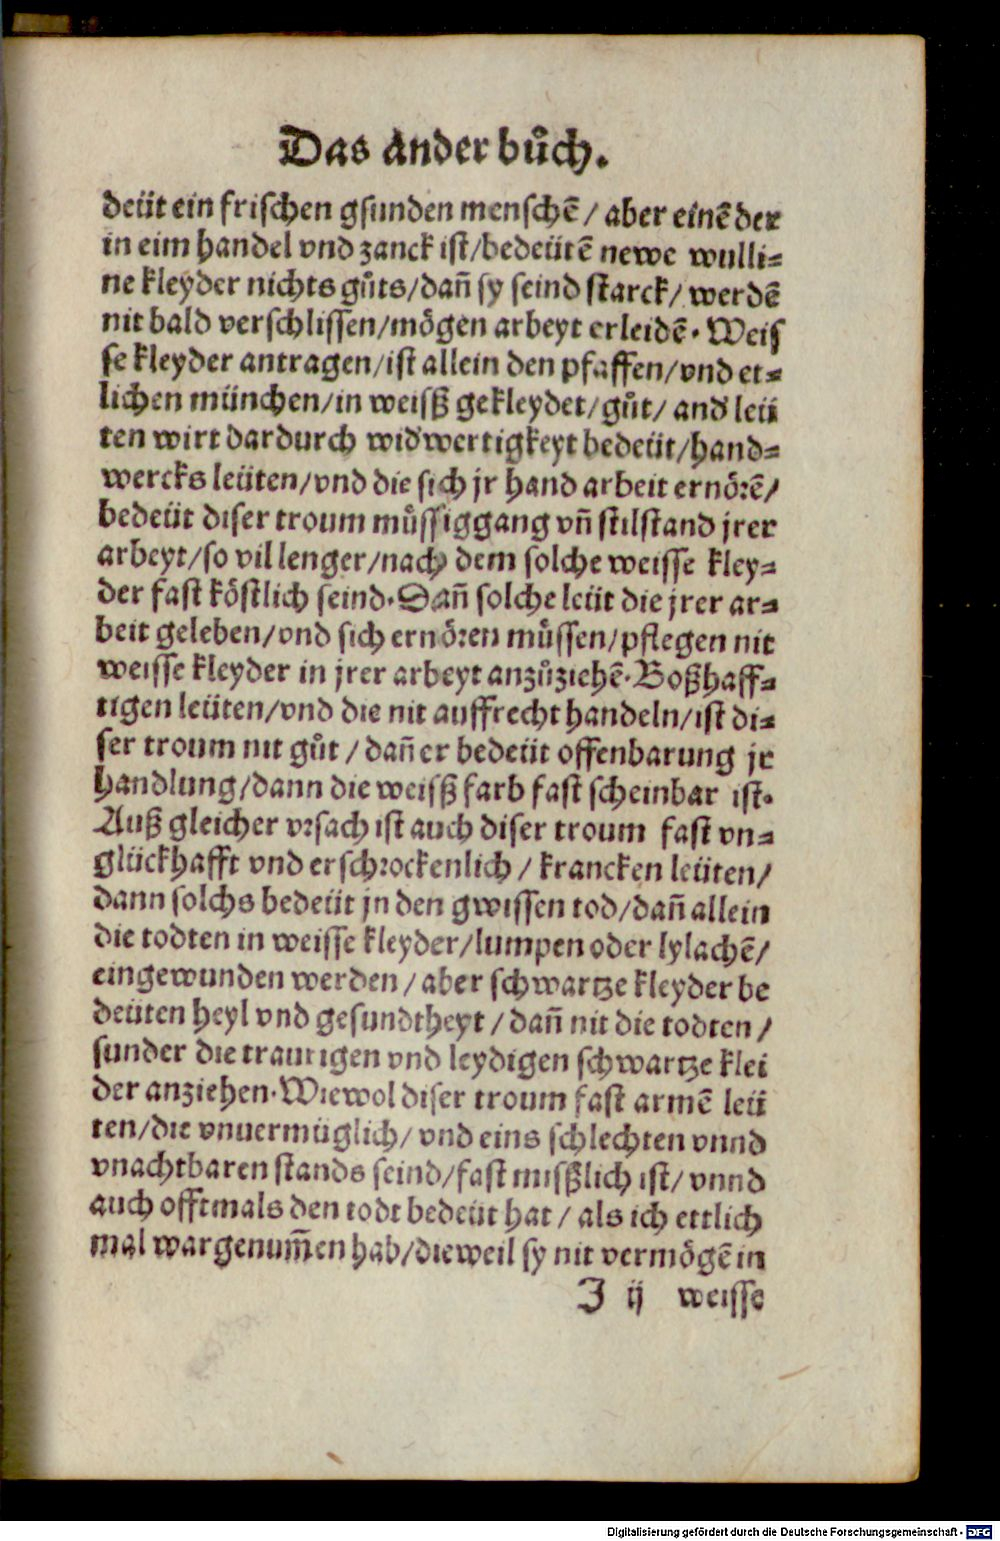 Das ander bůch.
deüt ein frischen gsunden menschē / aber einē der
in eim handel vnd zanck ist/bedeütē newe wulli⸗
ne kleyder nichts gůts/dañ sy seind starck/ werdē
nit bald verschlissen/mögen arbeyt erleidē. Weis
se kleyder antragen/ist allein den pfaffen/vnd et⸗
lichen münchen/in weissz gekleydet/gůt/ and leü
ten wirt dardurch widwertigkeyt bedeüt/hand⸗
wercks leüten/vnd die sich jr hand arbeit ernörē/
bedeüt diser troum můssiggang vñ stilstand jrer
arbeyt/so vil lenger/nach dem solche weisse kley⸗
der fast köstlich seind. Dañ solche leüt die jrer ar⸗
beit geleben/vnd sich ernören můssen/pflegen nit
weisse kleyder in jrer arbeyt anzůziehē. Boßhaff⸗
tigen leüten/vnd die nit auffrecht handeln/ist di⸗
ser troum nit gůt / dañ er bedeüt offenbarung jr
handlung/dann die weissz farb fast scheinbar ist.
Auß gleicher vrsach ist auch diser troum fast vn⸗
glückhafft vnd erschrockenlich / krancken leüten/
dann solchs bedeüt jn den gwissen tod/dañ allein
die todten in weisse kleyder/lumpen oder lylachē/
eingewunden werden / aber schwartze kleyder be
deüten heyl vnd gesundtheyt / dañ nit die todten /
sunder die traurigen vnd leydigen schwartze klei
der anziehen. Wiewol diser troum fast armē leü
ten/die vnuermüglich/ vnd eins schlechten vnnd
vnachtbaren stands seind/fast misszlich ist/ vnnd
auch offtmals den todt bedeüt hat / als ich ettlich
mal war genum̄en hab/dieweil sy nit vermögē in
J ij weisse
Digitalisierung gefördert durch die Deutsche Forschungsgemeinschaft - DFG